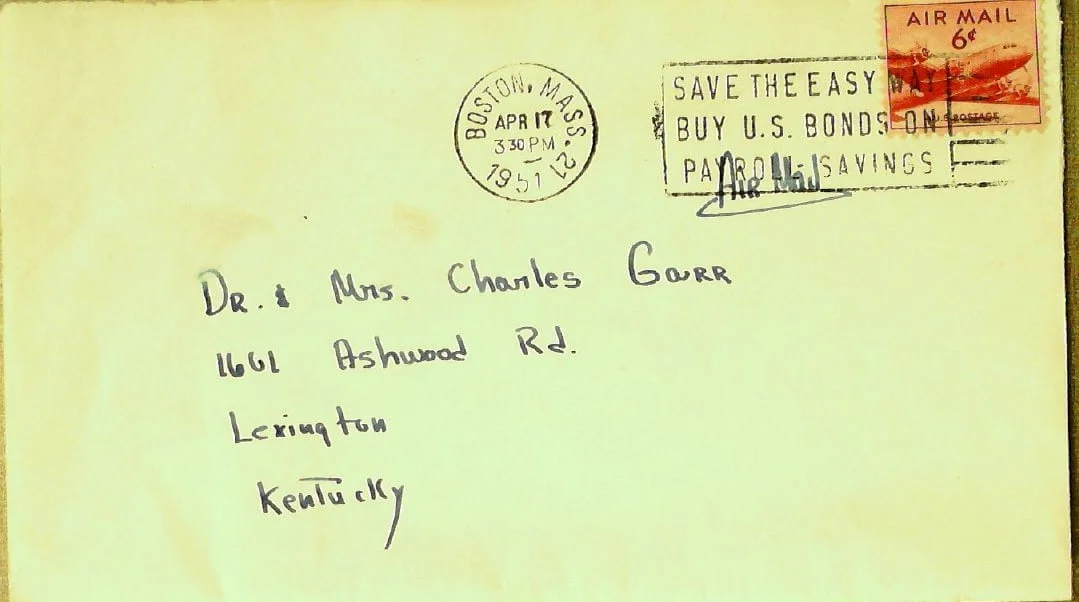 AIR MAIL
6¢
U.S. POSTAGE
BOSTON, MASS. 21
APR 17
3 30 PM
1951
SAVE THE EASY WAY
BUY U.S. BONDS ON
PAYROLL SAVINGS
Air Mail
Dr. & Mrs. Charles Garr
1661 Ashwood Rd.
Lexington
Kentucky